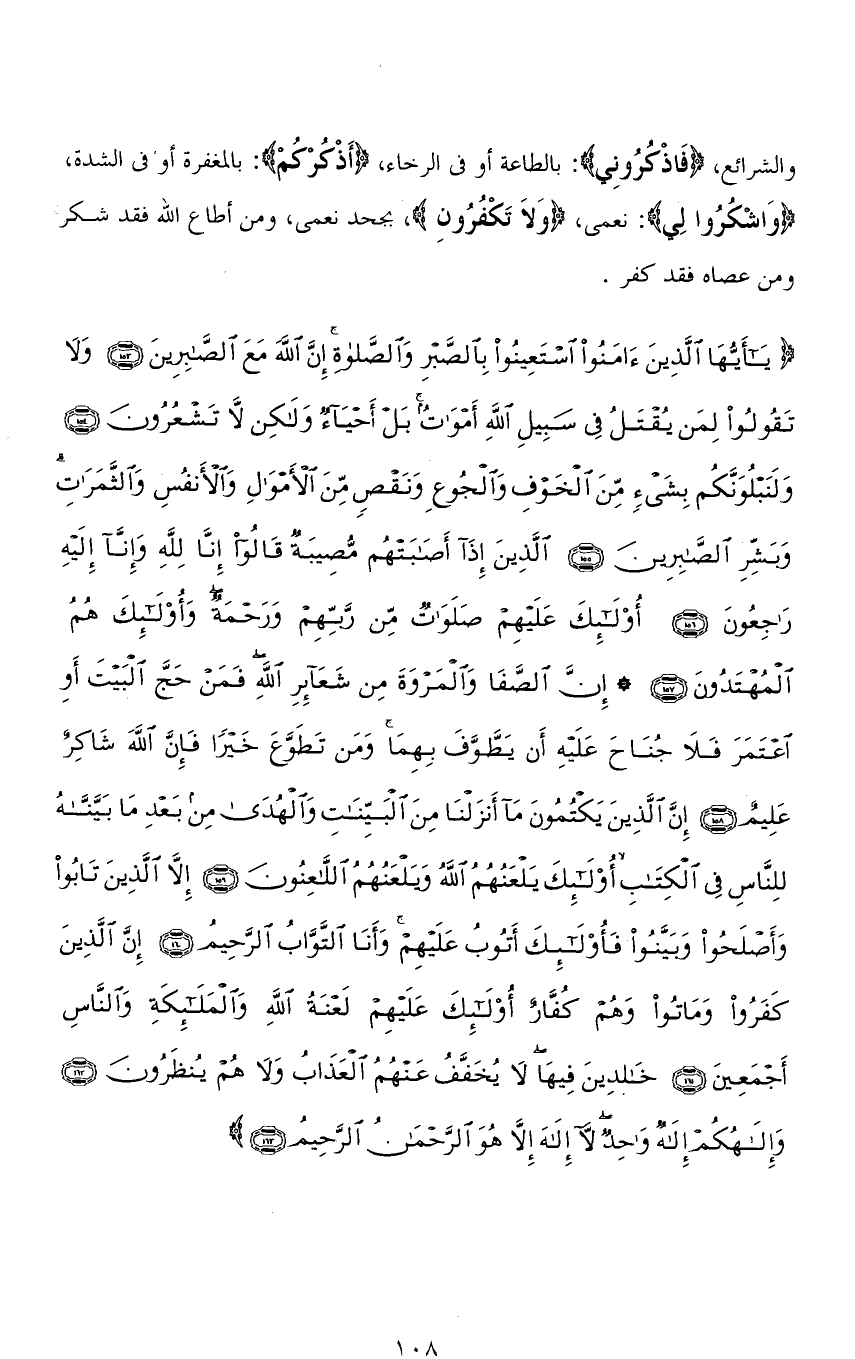 والشرائع، ﴿فَاذْكُرُونِي﴾: بالطاعة أو فى الرخاء، ﴿أَذْكُرْكُمْ﴾: بالمغفرة أو فى الشدة،
﴿وَاشْكُرُوا لِي﴾: نعمى، ﴿وَلاَ تَكْفُرُونِ ﴾، بجحد نعمى، ومن أطاع الله فقد شكر
ومن عصاه فقد كفر .
﴿ يَـٰٓأَيُّهَا ٱلَّذِينَ ءَامَنُوا۟ ٱسْتَعِينُوا۟ بِٱلصَّبْرِ وَٱلصَّلَوٰةِ ۚ إِنَّ ٱللَّهَ مَعَ ٱلصَّـٰبِرِينَ ١٥٣ وَلَا
تَقُولُوا۟ لِمَن يُقْتَلُ فِى سَبِيلِ ٱللَّهِ أَمْوَٰتٌۢ ۚ بَلْ أَحْيَآءٌ وَلَـٰكِن لَّا تَشْعُرُونَ ١٥٤
وَلَنَبْلُوَنَّكُم بِشَىْءٍ مِّنَ ٱلْخَوْفِ وَٱلْجُوعِ وَنَقْصٍ مِّنَ ٱلْأَمْوَٰلِ وَٱلْأَنفُسِ وَٱلثَّمَرَٰتِ ۗ
وَبَشِّرِ ٱلصَّـٰبِرِينَ ١٥٥ ٱلَّذِينَ إِذَآ أَصَـٰبَتْهُم مُّصِيبَةٌ قَالُوٓا۟ إِنَّا لِلَّهِ وَإِنَّآ إِلَيْهِ
رَٰجِعُونَ ١٥٦ أُو۟لَـٰٓئِكَ عَلَيْهِمْ صَلَوَٰتٌ مِّن رَّبِّهِمْ وَرَحْمَةٌ ۖ وَأُو۟لَـٰٓئِكَ هُمُ
ٱلْمُهْتَدُونَ ١٥٧ * إِنَّ ٱلصَّفَا وَٱلْمَرْوَةَ مِن شَعَآئِرِ ٱللَّهِ ۖ فَمَنْ حَجَّ ٱلْبَيْتَ أَوِ
ٱعْتَمَرَ فَلَا جُنَاحَ عَلَيْهِ أَن يَطَّوَّفَ بِهِمَا ۚ وَمَن تَطَوَّعَ خَيْرًا فَإِنَّ ٱللَّهَ شَاكِرٌ
عَلِيمٌ ١٥٨ إِنَّ ٱلَّذِينَ يَكْتُمُونَ مَآ أَنزَلْنَا مِنَ ٱلْبَيِّنَـٰتِ وَٱلْهُدَىٰ مِنۢ بَعْدِ مَا بَيَّنَّـٰهُ
لِلنَّاسِ فِى ٱلْكِتَـٰبِ ۙ أُو۟لَـٰٓئِكَ يَلْعَنُهُمُ ٱللَّهُ وَيَلْعَنُهُمُ ٱللَّـٰعِنُونَ ١٥٩ إِلَّا ٱلَّذِينَ تَابُوا۟
وَأَصْلَحُوا۟ وَبَيَّنُوا۟ فَأُو۟لَـٰٓئِكَ أَتُوبُ عَلَيْهِمْ ۚ وَأَنَا ٱلتَّوَّابُ ٱلرَّحِيمُ ١٦٠ إِنَّ ٱلَّذِينَ
كَفَرُوا۟ وَمَاتُوا۟ وَهُمْ كُفَّارٌ أُو۟لَـٰٓئِكَ عَلَيْهِمْ لَعْنَةُ ٱللَّهِ وَٱلْمَلَـٰٓئِكَةِ وَٱلنَّاسِ
أَجْمَعِينَ ١٦١ خَـٰلِدِينَ فِيهَا ۖ لَا يُخَفَّفُ عَنْهُمُ ٱلْعَذَابُ وَلَا هُمْ يُنظَرُونَ ١٦٢
وَإِلَـٰهُكُمْ إِلَـٰهٌ وَٰحِدٌ ۖ لَّآ إِلَـٰهَ إِلَّا هُوَ ٱلرَّحْمَـٰنُ ٱلرَّحِيمُ ١٦٣ ﴾
١٠٨